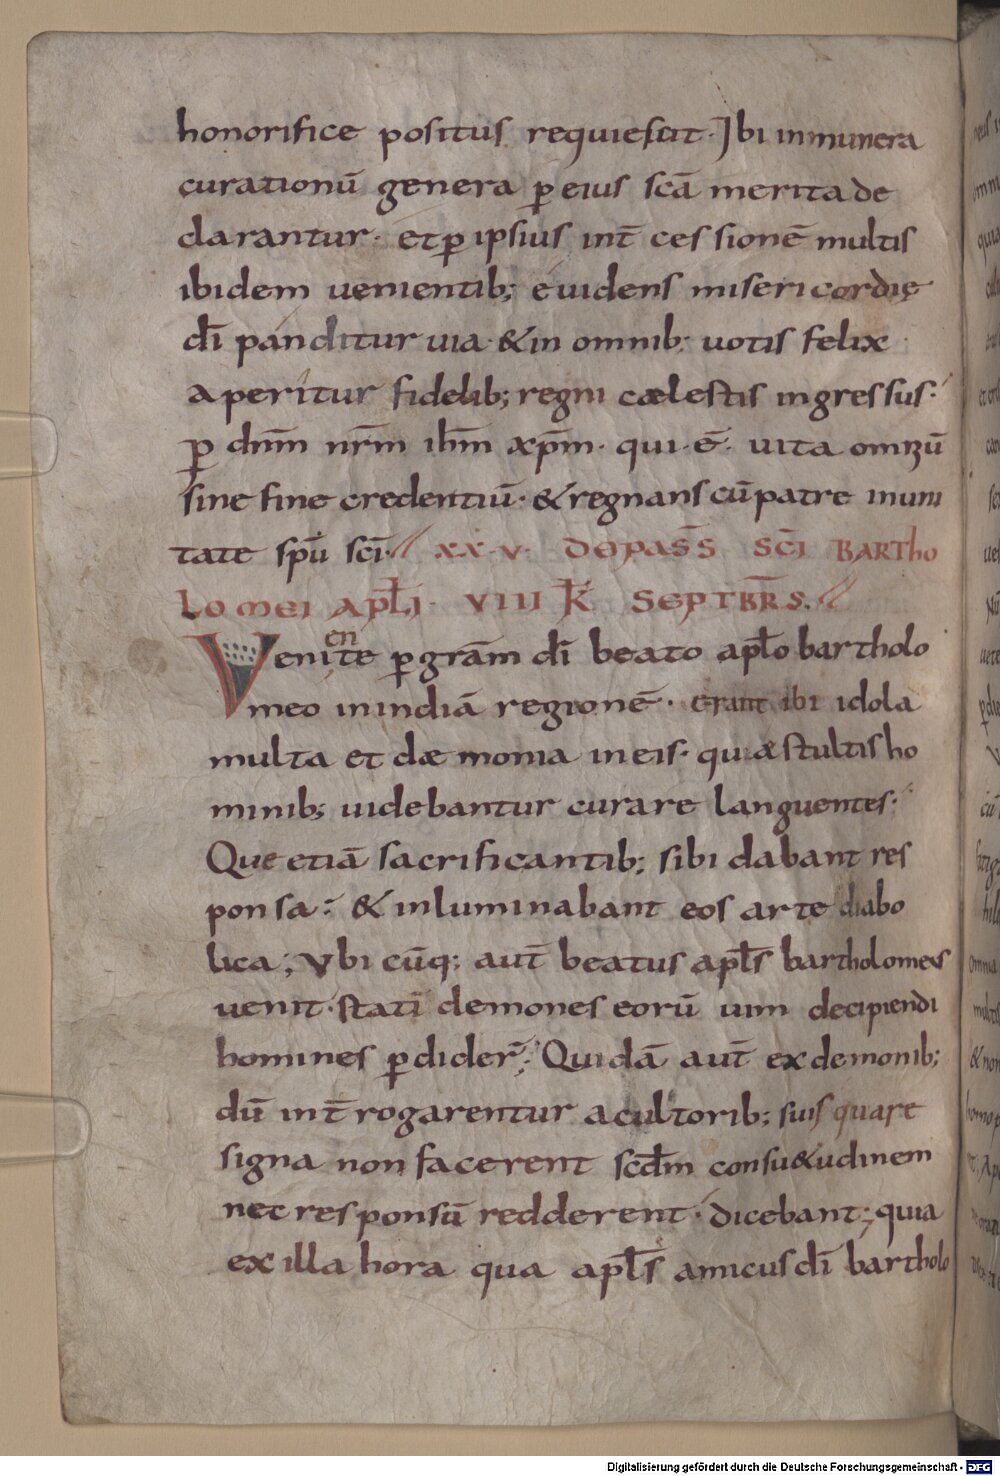 honorifice positus requiescit. Ibi innunera
curationū genera ꝑ eius scā merita de
clarantur. et ꝑ ipsius int̄ cessionē multis
ibidem uenientib; euidens misericordię
dī panditur uia. & in omnib; uotis felix
aperitur fidelib; regni cælestis ingressus.
ꝑ dnm̄ nrm̄ ihm̄ xp̄m. qui .ē. uita omniū
sine fine credentiū. & regnans cū patre inuni
tate sp̄u sc̄i. XXV. DE PASS̄ SC̄I BARTHO
LOMEI APL̄I. VIII K̄ SEPTBR̄S.
en
Venite ꝑ grām dī beato apl̄o bartholo
meo in indiā regionē. erant ibi idola
multa et dæmonia in eis. quia stultis ho
minib; uidebantur curare languentes.
Que etiā sacrificantib; sibi dabant res
ponsa. & inluminabant eos arte diabo
lica; Vbi cūq; aut̄ beatus apl̄s bartholomeus
uenit. statī demones eorū uim decipiendi
homines ꝑdider̄; Quidā aut̄ ex demonib;
dū int̄ rogarentur a cultorib; suis quare
signa non facerent scd̄m consu&udinem
nec responsū redderent. dicebant; quia
ex illa hora qua apl̄s amicus dī bartholo
Digitalisierung gefördert durch die Deutsche Forschungsgemeinschaft - DFG